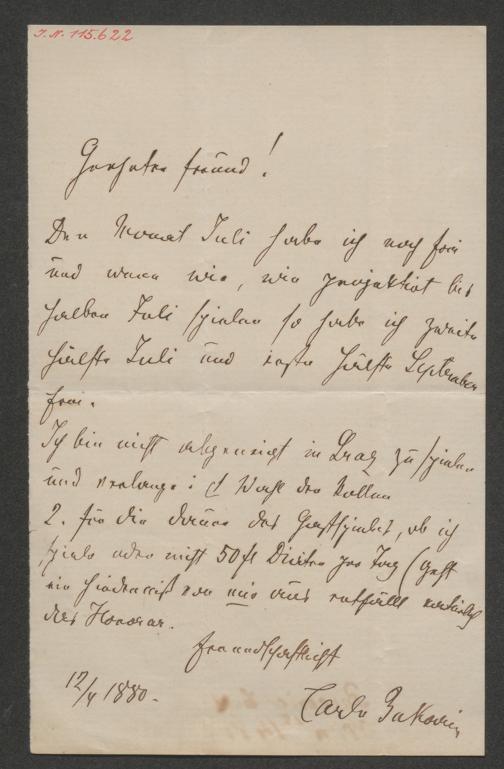 I.N. 115.622
Geehrter Freund!
Den Monat Juli habe ich noch frei
und wenn wir, wie projektirt bis
halben Juli spielen so habe ich zweite
Hälfte Juli und erste Hälfte September
frei.
Ich bin nicht abgeneigt in Graz zu spielen
und verlange: 1 Wahl der Rollen
2. für die Dauer des Gastspieles, ob ich
spiele oder nicht 50 fl Diäten pro Tag (Geht
ein Hinderniß von mir aus entfällt natürlich
das Honorar.
Freundschaftlichst
12/4 1880.
Carlo